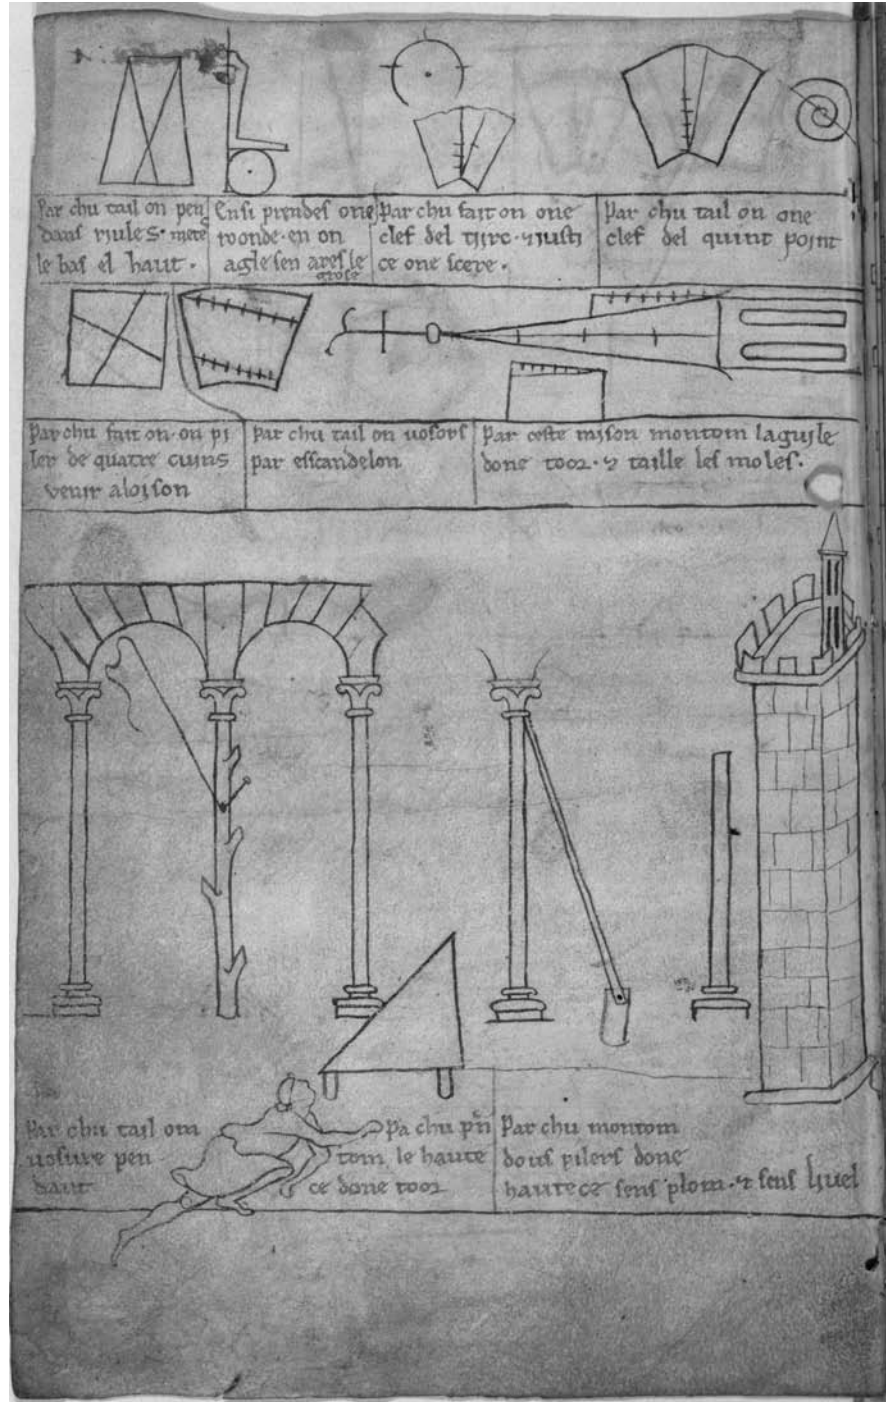 Par chu tail on pen
dans riules · mete
le bas el haut ·
Ensi prendes one
roonde · en on
agle sen ares le
grose
Par chu fait on one
clef del tijrc · ⁊ justi
ce one scere ·
Par chu tail on one
clef del quint point
Par chu fait on · on pi
ler de quatre cuins
venir a loison
Par chu tail on vosors
par esscandelon
Par ceste raison montom laguile
done toor · ⁊ taille les moles ·
Par chu tail om
vosure pen
haut
Pa chu pñ
tom le haute
ce done toor
Par chu montom
dous pilers done
hautece sens plom · ⁊ sens livel